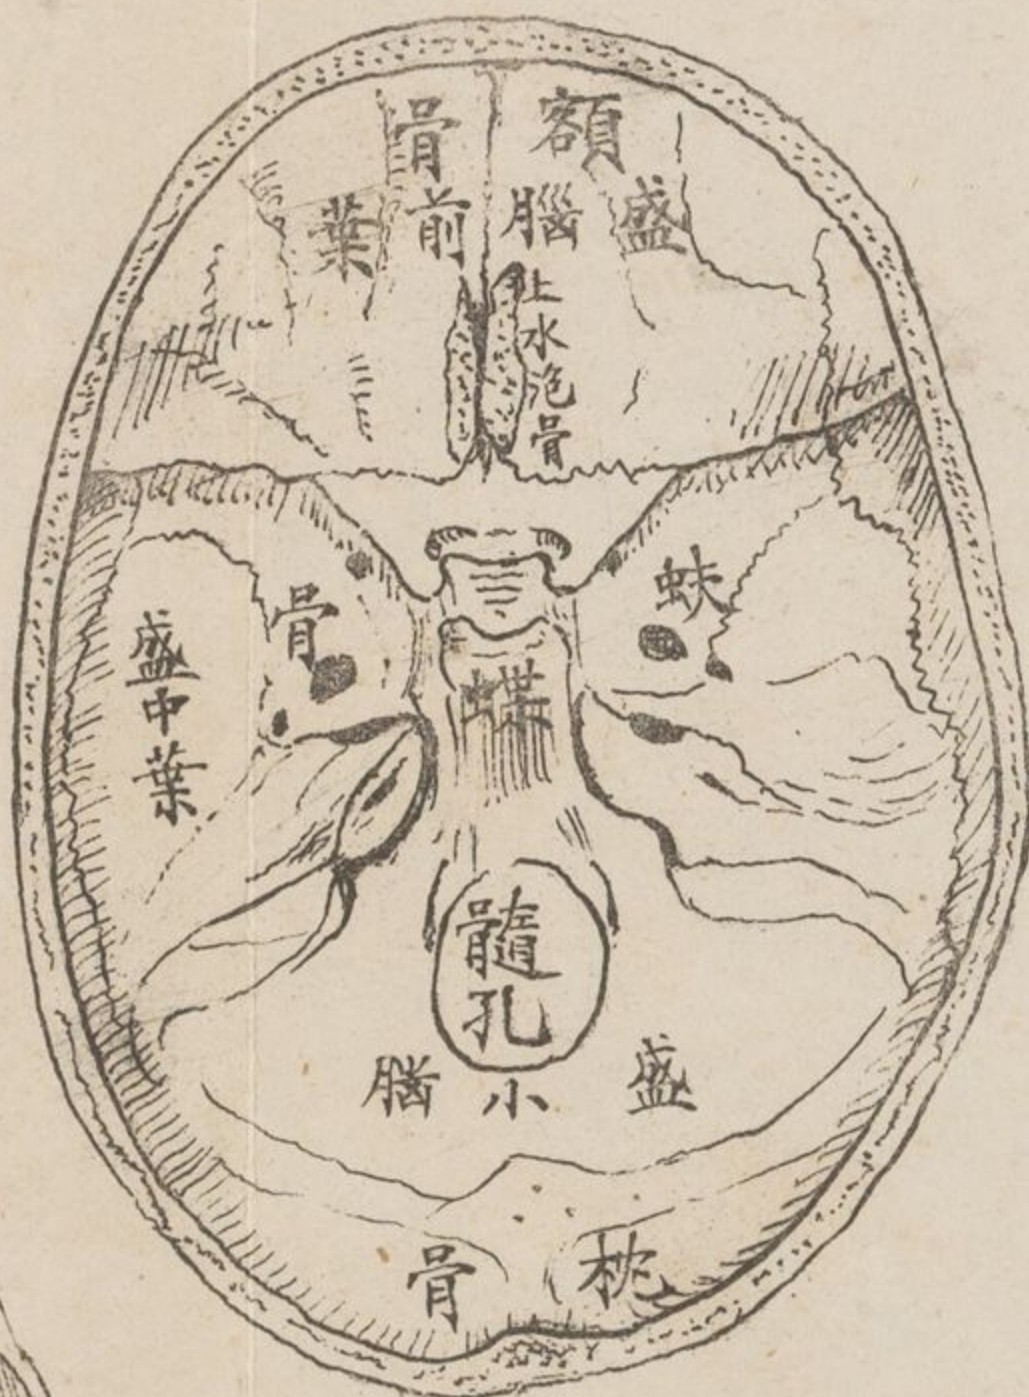 額骨
盛腦前葉
上水泡骨
蚨蝶骨
盛中葉
髓孔
盛小腦
枕骨